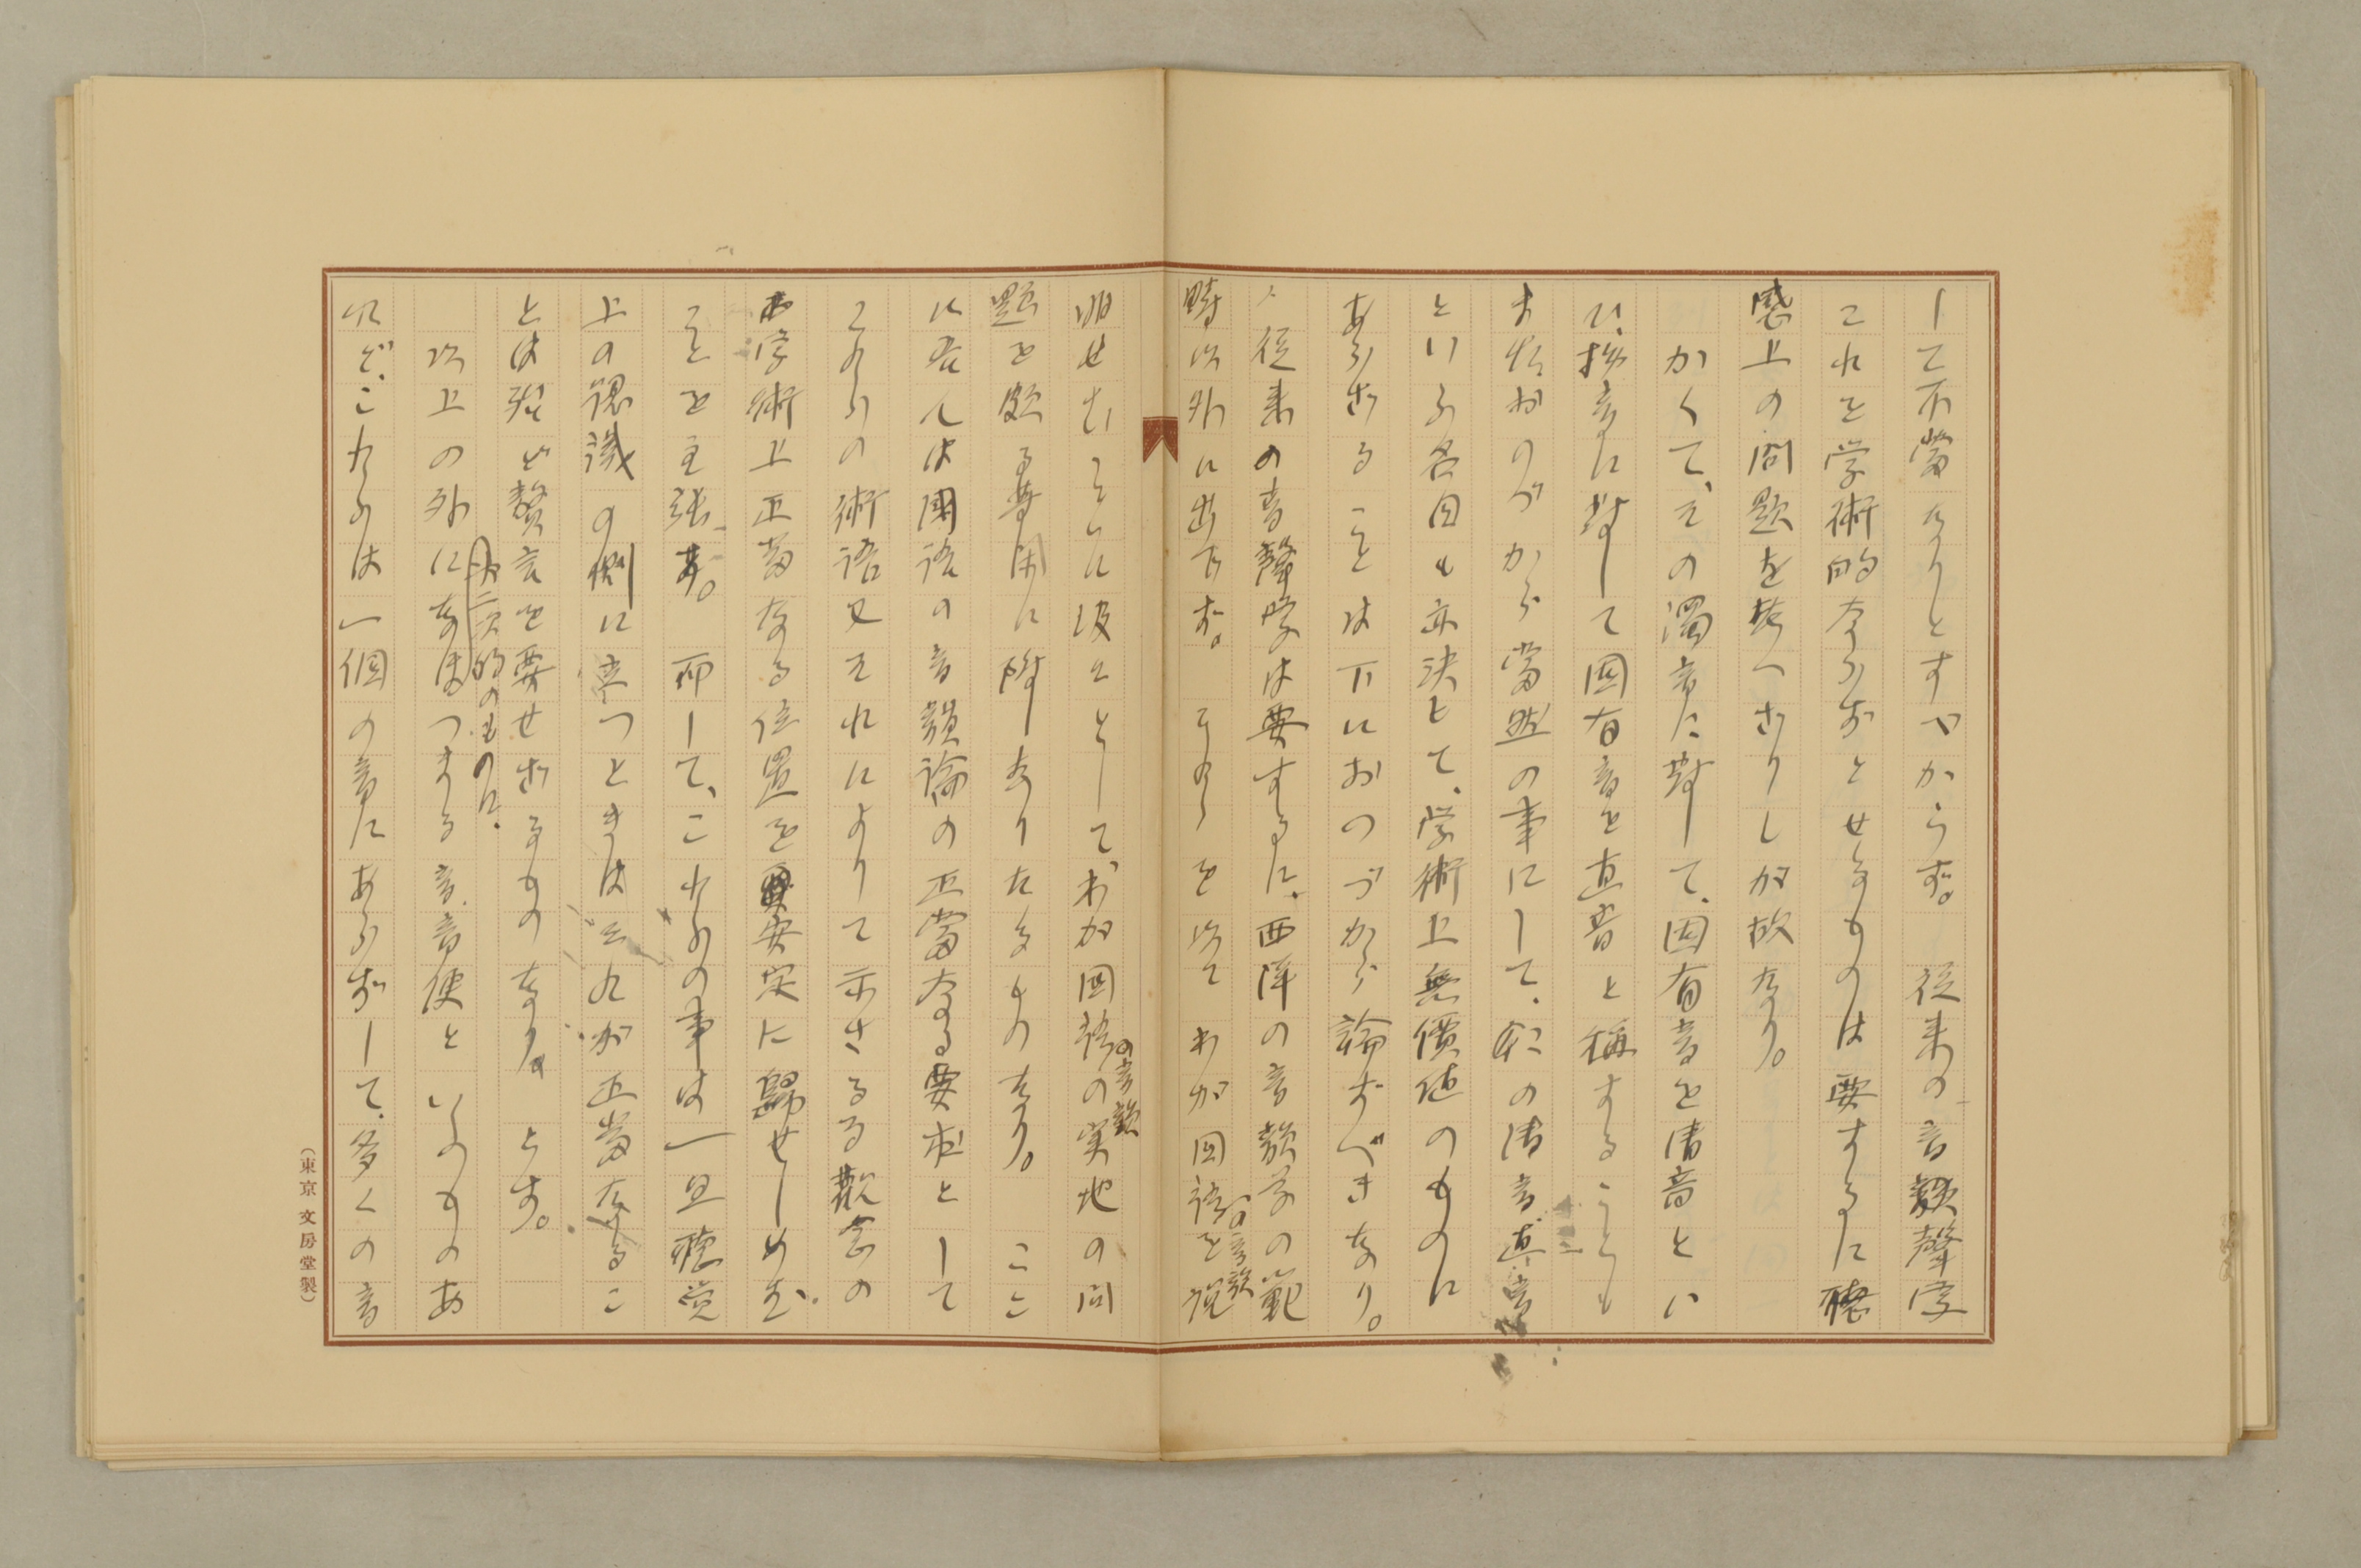 して不當なりとすべからず。 従来の音韻聲学
これを学術的ならずとせるものは要するに聴
感上の問題を考へざりしが故なり。
かくて、その濁音に對して、固有音を清音とい
ひ、拗音に對して固有音を直音と稱することも
またおのづから當然の事にして、この清音直音
といふ名目も亦決して、学術上無價値のものに
あらざることは下におのづから論ずべきなり。
従来の音聲学は要するに、西洋の音韻学の範
疇以外に出でず。 それらを以て わが國語を説
の音韻
明せむとするに彼としてわが國語の実地の問
の音韻
題を頗る等閑に附しありたるものなり。 ここ
に吾人は國語の音韻論の正當なる要求として
これらの術語又それによりて示さるる觀念の
学術上正當なる位置を安定に歸せしめむ
ことを主張す。 而して、これらの事は一旦聴覚
上の認識の側に立つときはそれが正當なるこ
とは殆ど贅言を要せざるものなりとす。
第二次的のものに、
以上の外になほつまる音、音便といふものあ
れど、これらは一個の音にあらずして、多くの音
(東京文房堂製)